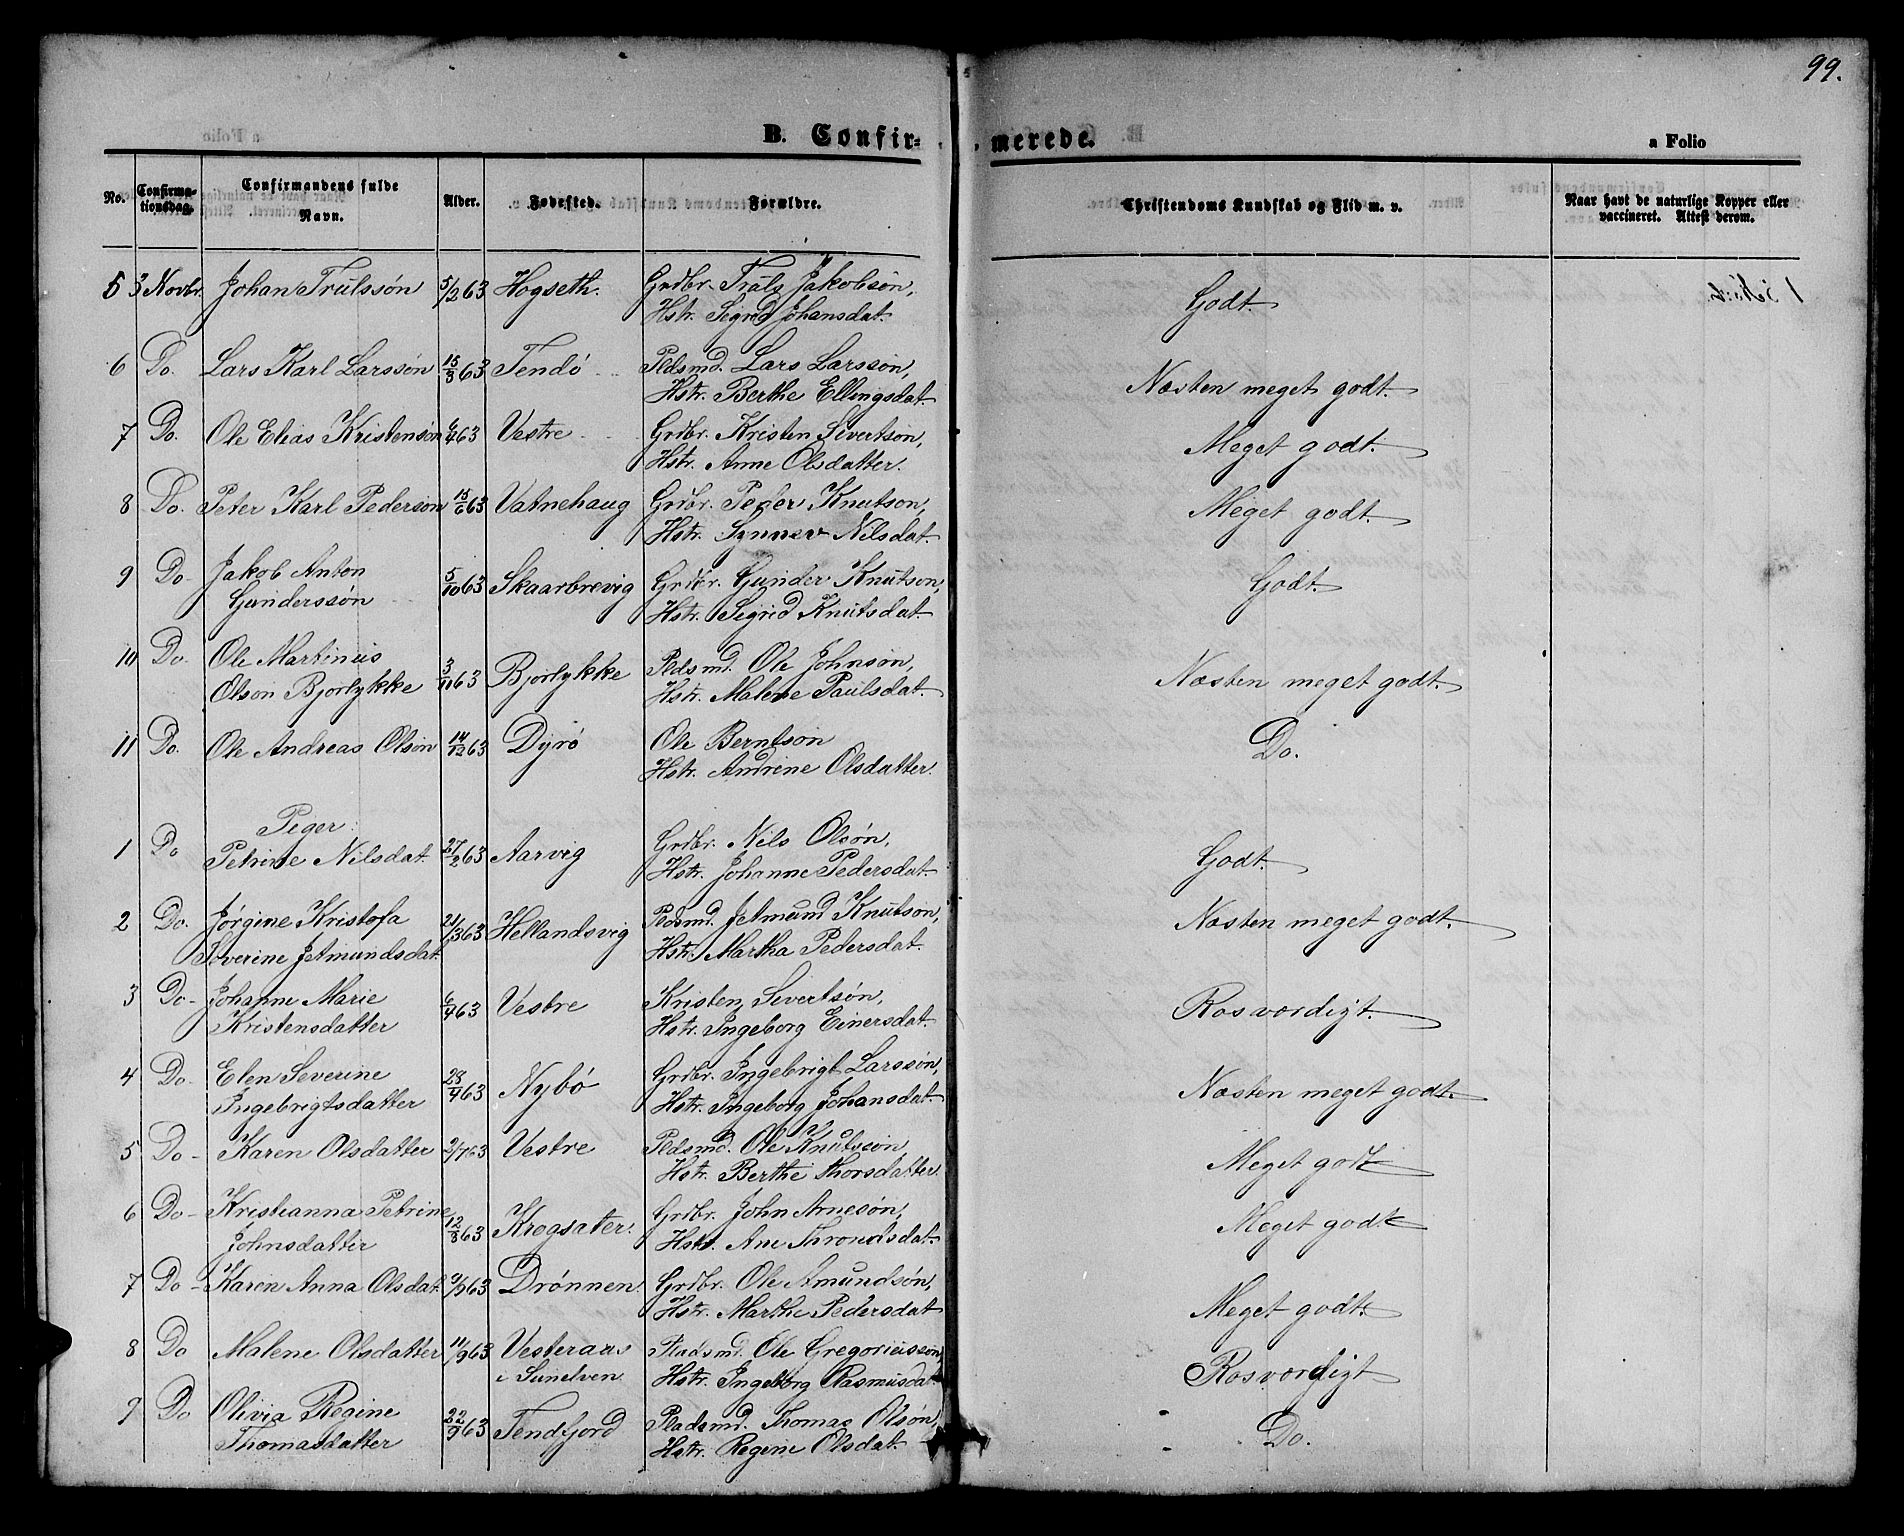 99.
B. Confir-
merede.
a Folio
No.
Confirma-
tionsdag.
Confirmandens fulde
Navn.
Alder.
Fødested.
Forældre.
Christendoms Kundskab og Flid m. v.
Naar havt de naturlige Kopper eller
vaccineret. Attest derom.
5 3 Novbr. Johan Trulssøn 5/2 63 Hogseth. Grdbr. Truls Jakobsøn,
Hstr. Segrid Johansdat.
Godt.
6 Do. Lars Karl Larssøn 15/3 63 Tendø Pldsmd. Lars Larssøn,
Hstr. Berthe Ellingsdat.
Næsten meget godt.
7 Do. Ole Elias Kristensøn 6/4 63 Vestre Grdbr. Kristen Sivertsøn,
Hstr. Anne Olsdatter.
Meget godt.
8 Do. Peter Karl Pedersøn 15/6 63 Vatnehaug Grdbr. Peder Knutson,
Hstr. Synnev Nilsdat.
Meget godt.
9 Do. Jakob Anton
Gunderssøn 5/10 63 Skaarbrevig Grdbr. Gunder Knutson,
Hstr. Segrid Knutsdat.
Godt.
10 Do. Ole Martinus
Olson Bjorlykke 3/11 63 Bjorlykke Pldsmd. Ole Johnsøn,
Hstr. Malene Paulsdat.
Næsten meget godt.
11 Do. Ole Andreas Olsøn 14/12 63 Dyrø Ole Berntson
Hstr. Andrine Olsdatter.
Do.
Peger
1 Do Petrine Nilsdat. 27/2 63 Aarvig Grdbr. Nils Olsøn,
Hstr. Johanne Pedersdat.
Godt.
2 Do. Jørgine Kristofa
Severine JAmundsdat. 21/3 63 Hellandsvig Pldsmd. JAmund Knutson,
Hstr. Martha Pedersdat.
Næsten meget godt.
3 Do. Johanne Marie
Kristensdatter 6/4 63 Vestre Kristen Sivertsøn,
Hstr. Ingeborg Einersdat.
Rosværdigt.
4 Do. Elen Severine
Ingebrigtsdatter 28/4 63 Nybø Grdbr. Ingebrigt Larssøn,
Hstr. Ingeborg Johansdat.
Næsten meget godt.
5 Do. Karen Olsdatter 2/7 63 Vestre Pldsmd. Ole Knutssøn,
Hstr. Berthe Thorsdatter
Meget godt
6 Do. Kristianna Petrine
Johnsdatter 12/8 63 Krogsater. Grdbr. John Arnesøn,
Hstr. Ane Throndsdat.
Meget godt
7 Do. Karen Anna Olsdat. 9/9 63 Drønnen Grdbr. Ole Amundsøn,
Hstr. Marthe Pedersdat
Meget godt
8 Do Malene Olsdatter 11/9 63 Vesteraas
i Sunelven Pladsmd. Ole Gregoriusson,
Hstr. Ingeborg Rasmusdat.
Rosværdigt
9 Do Olivia Regine
Thomasdatter 22/9 63 Tendfjord Pladsmd. Thomas Olsøn,
Hstr. Regine Olsdat.
Do.